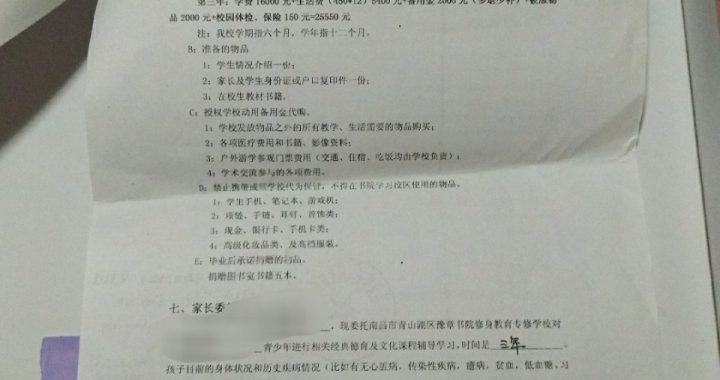 第三年：学费 16000 元+生活费（450*12）5400 元+备用金 2000 元（多退少补）+被服物
品 2000 元+校园体检、保险 150 元=25550 元
注：我校学期指六个月，学年指十二个月。
B：准备的物品
1：学生情况介绍一份；
2：家长及学生身份证或户口复印件一份；
3：在校生教材书籍。
C：授权学校动用备用金代购。
1：学校发放物品之外的所有教学、生活需要的物品购买；
2：各项医疗费用和书籍、影像资料；
3：户外游学参观门票费用（交通、住宿、吃饭均由学校负责）；
4：学术交流参与的各项费用。
D：禁止携带或需学校代为保管，不得在书院学习校区使用的物品。
1：学生手机、笔记本、游戏机；
2：项链、手链、耳钉、首饰类；
3：现金、银行卡、手机卡类；
4：高级化妆品类、及高档服装。
E：毕业后承诺捐赠的物品。
捐赠图书室书籍五本。
七、家长委
，现委托南昌市青山湖区豫章书院修身教育专修学校对
青少年进行相关经典德育及文化课程辅导学习，时间是 三年
孩子目前的身体状况和历史疾病情况（比如有无心脏病，传染性疾病，癔病，贫血，低血糖、习